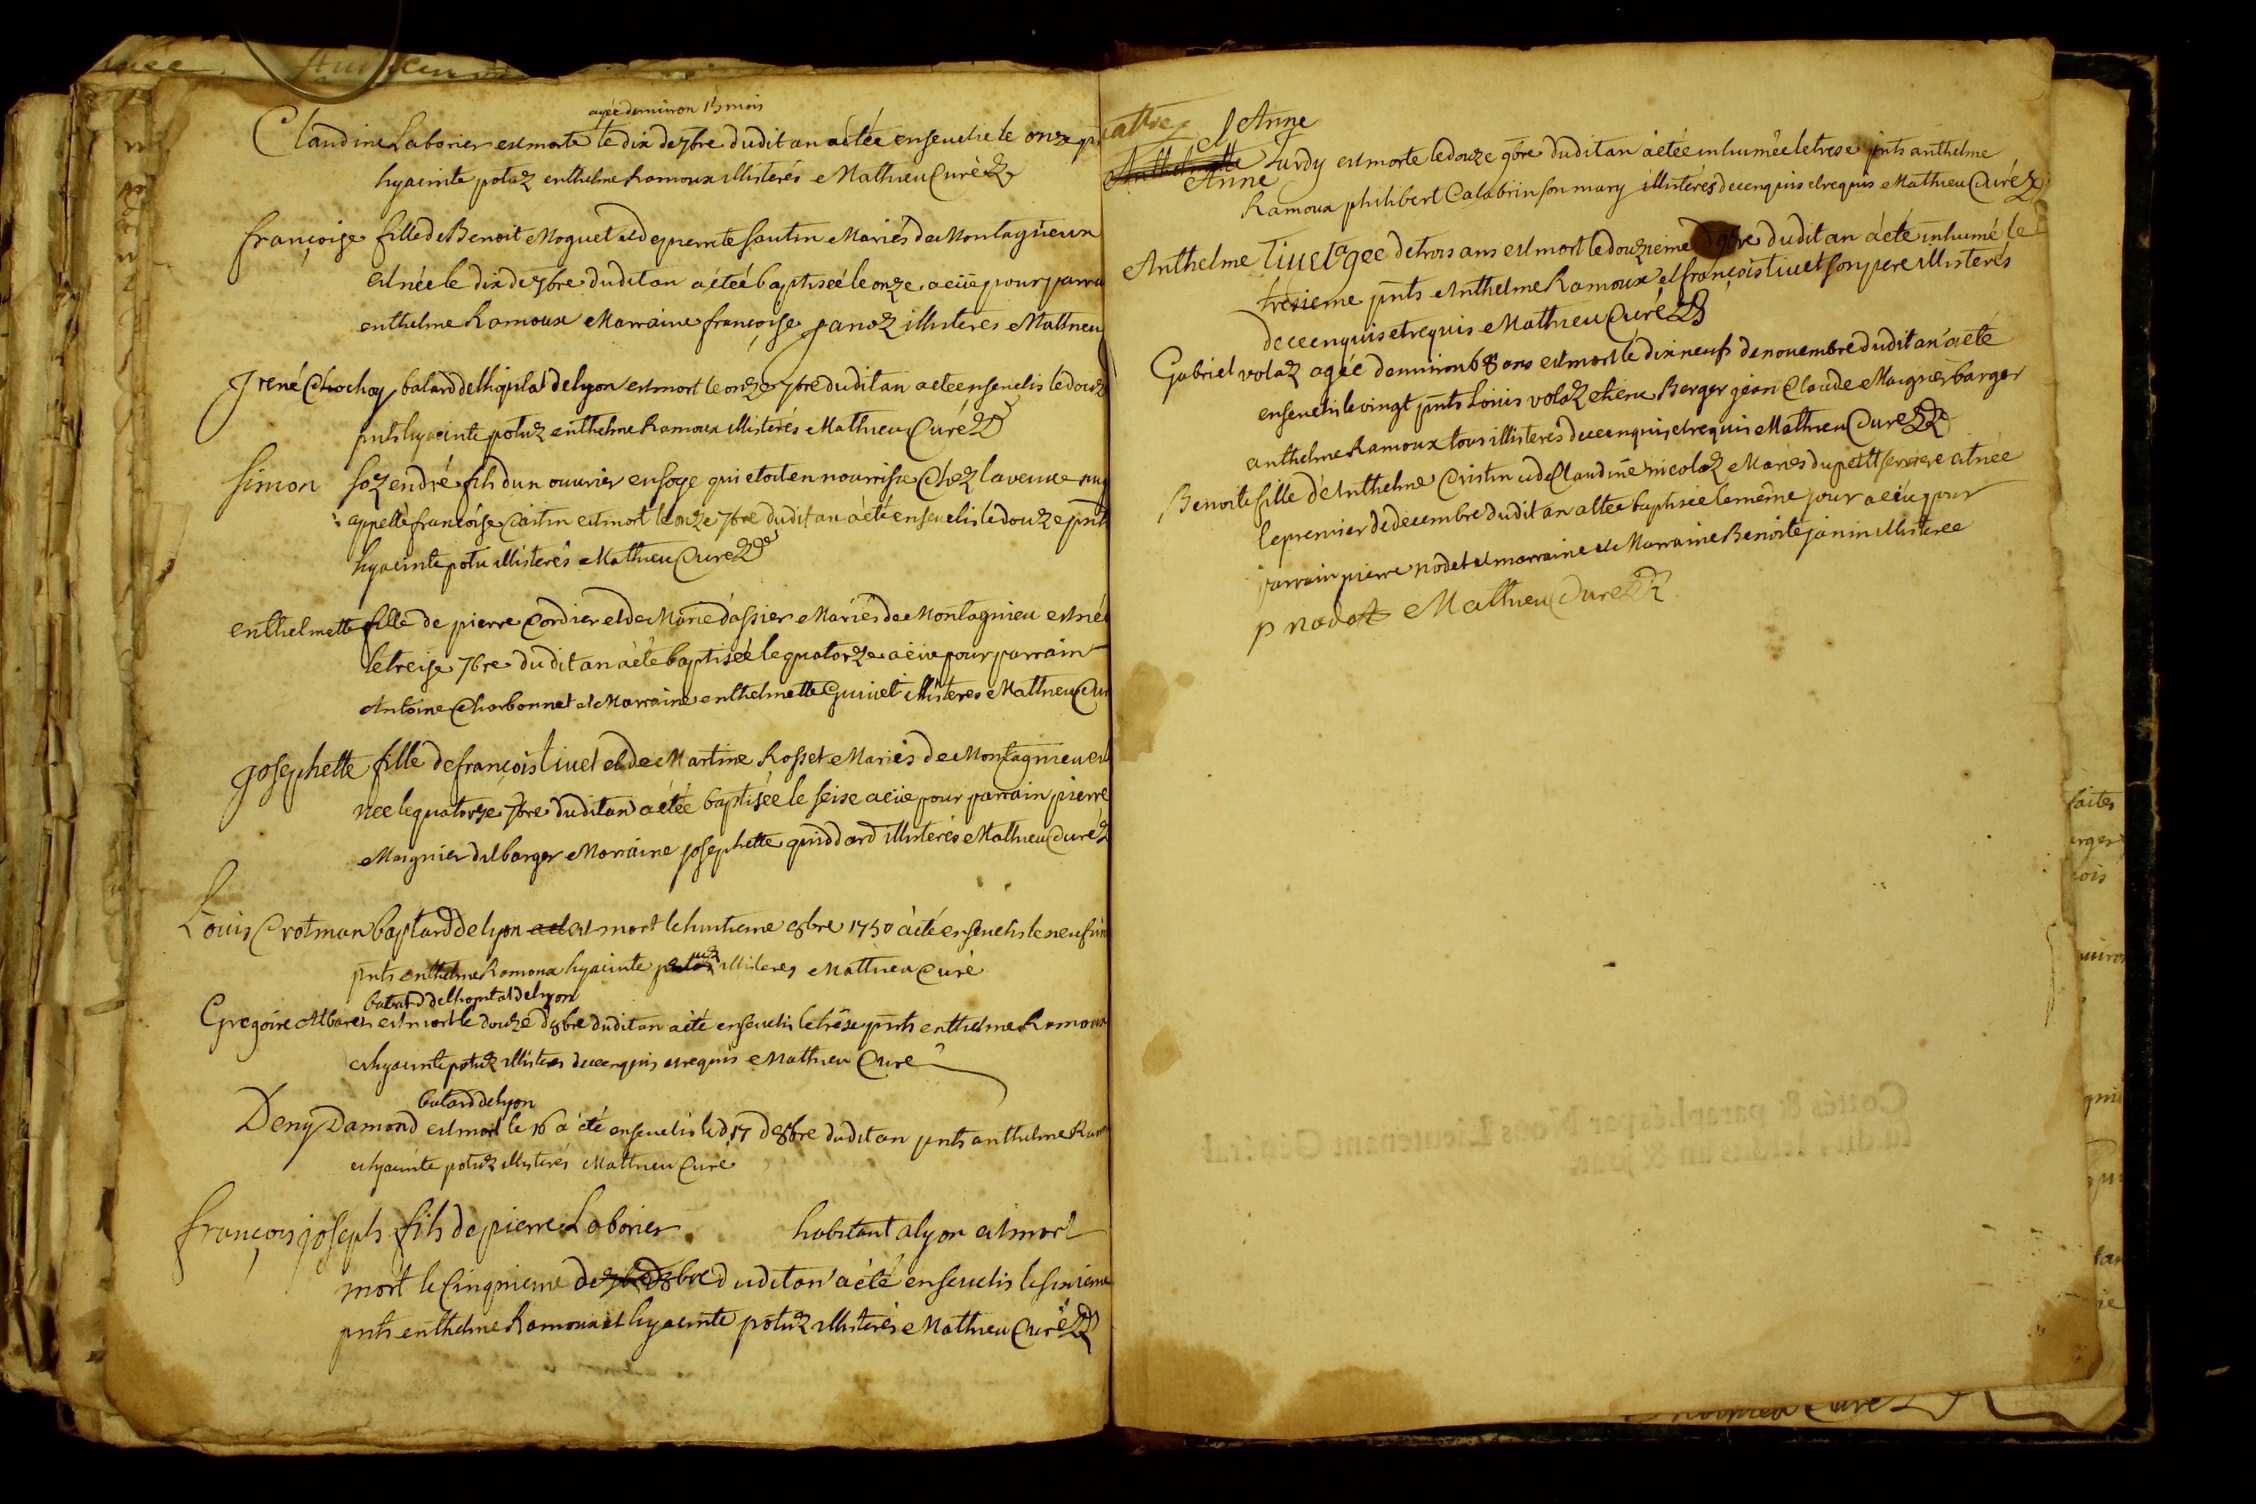 agée denviron 15 mois
Claudine Laborier est morte le dix de 7bre dudit an a étée ensevelie le onze
hyacinte potuz enthelme Ramoux illisterés Mathieu Curé
françoise fille de Benoit Moguet et de pernete fantin Mariés de Montagnieux
est née le dix de 7bre dudit an a étéé baptiseé le onze a eüe pour parra
enthelme Ramoux Marraine françoise panoz illisteres Mathieu
Irené Chochoy batard delhopital de lyon est mort le onze 7bre dudit an a ete ensevelis le douz
pnts hyacinte potuz enthelme Ramoux illisterés Mathieu Curé
Simon fozendré fils dun ouvrier en soye qui etoit en nourrisse Chez la veuve
appellé françoise Cristin est mort le onze 7bre dudit an a été ensevelis le douze pnts
hyacinte potu illisterés Mathieu Curé
enthelmette fille de pierre Cordier et de Marie dassier Mariés de Montagnieu est né
le treise 7bre dudit an a été baptiseé le quatorze a eüe pour parrain
Antoine Charbonnet et Marraine enthelmette Guinet illisteres Mathieu Cur
Josephette fille de françois tivet et de Martine Rosset Mariés de Montagnieu est
neé le quatorze 7bre dudit an a étée baptisée le seise a eüe pour parrain pierre
Maignier dit barger Marraine josephette quiddard illisterés Mathieu Curé
Louis Crotman baptard de lyon est mort le huitieme 8bre 1750 a été ensevelis le neufi
pnts enthelme Ramoux hyacinte illisteres Mathieu Curé
batard delhopital de lyon
Gregoire Albaret est mort le douze d 8bre dudit an a été ensevelis le trese pnts enthelme Ramoux
et hyacinte potuz illisteres de ce enquis et requis Mathieu Curé
batard de lyon
Deny Damond est mort le 16 a été ensevelis le d 17 d 8bre dudit an pnts anthelme Ram
et hyacinte potuz illisterés Mathieu Curé
françois joseph fils de pierre Laborier habitant a lyon est mort
mort le Cinquieme d 8bre dudit an a été ensevelis le sixieme
pnts enthelme Ramoux et hyacinte potuz illisterés Mathieu Curé
Anne
Anthelmette Jurdy est morte le douze 9bre dudit an a étée inhumée le trese pnts anthelme
Anne
Ramoux philibert Calabrin son mary illisterés de ce enquis et requis Mathieu Curé
Anthelme Tivet agee de trois ans est mort le douzieme 9bre dudit an a été inhumé le
tresieme pnts Anthelme Ramoux et françois tivet son pere illisterés
de ce enquis et requis Mathieu Curé
Gabriel volaz agée denviron 68 ans est mort le dix neuf de novembre dudit an a été
ensevelis le vingt pnts Loüis volaz etiene Berger jean Claude Maignier barger
anthelme Ramoux tous illisterés de ce enquis et requis Mathieu Curé
Benoite fille d'Anthelme Cristin et de Claudine nicolaz Mariés du petit serriere est née
le premier de decembre dudit an a étée baptisée le même jour a eüe pour
parrain pierre nodet et marraine et Marraine Benoite janin illisterée
p nodet Mathieu Curé